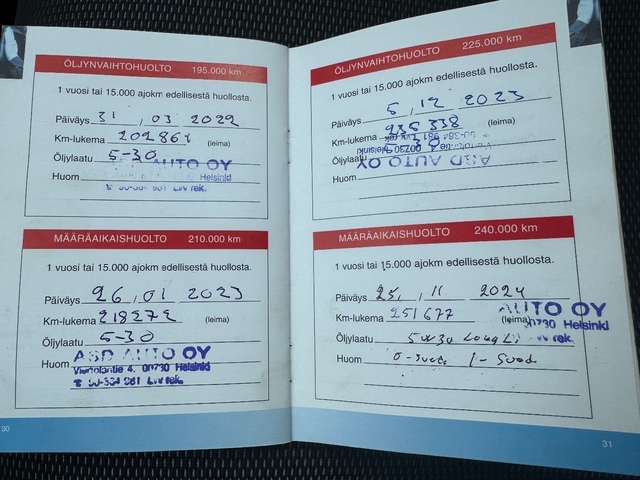 ÖLJYNVAIHTOHUOLTO 195.000 km
1 vuosi tai 15.000 ajokm edellisestä huollosta.
Päiväys 31 . 03 . 2022
Km-lukema 202867 (leima)
Öljylaatu 5-30
AUTO OY
Huom
Helsinki
MÄÄRÄAIKAISHUOLTO 210.000 km
1 vuosi tai 15.000 ajokm edellisestä huollosta.
Päiväys 26 . 01 2023
Km-lukema 218272 (leima)
Öljylaatu 5-30
Huom ASD AUTO OY
Viertolantie 4, 00730 Helsinki
30
ÖLJYNVAIHTOHUOLTO 225.000 km
1 vuosi tai 15.000 ajokm edellisestä huollosta.
Päiväys 5 . 12 2023
Km-lukema 235338 (leima)
Öljylaatu
ASD AUTO OY
Huom
MÄÄRÄAIKAISHUOLTO 240.000 km
1 vuosi tai 15.000 ajokm edellisestä huollosta.
Päiväys 25. . 11 2024
Km-lukema 251677 (leima)
AUTO OY
00730 Helsinki
Öljylaatu 5w30 Long
Huom ö-suod. i-suod.
31